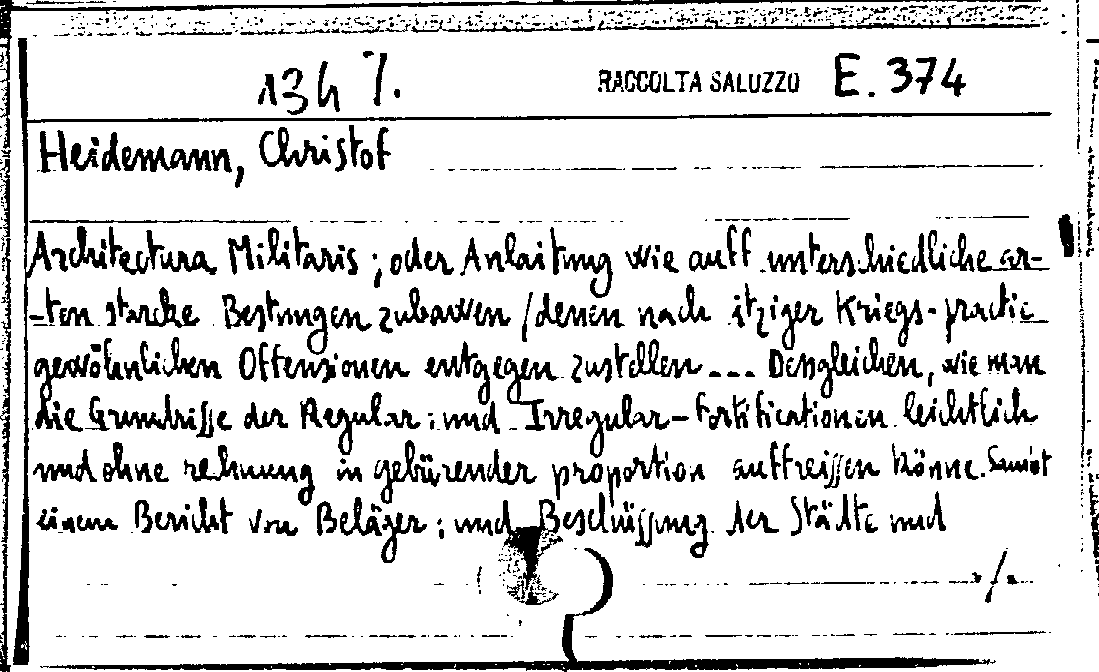 1347.
RACCOLTA SALUZZO E. 374
Heidemann, Christof
Architectura Militaris; oder Anlaitung wie auff unterschiedliche ar-
-ten starcke Bestungen zubawen / denen nach itziger Kriegs-practic
gewöhnlichen Offensionen entgegen zustellen... Desgleichen, wie man
die Grundrisse der Regular: und Irregular-Fortificationen leichtlich
und ohne rechnung in gebürender proportion auffreissen könne. Samt
einem Bericht von Beläger: und Beschüssung der Städte und
./.